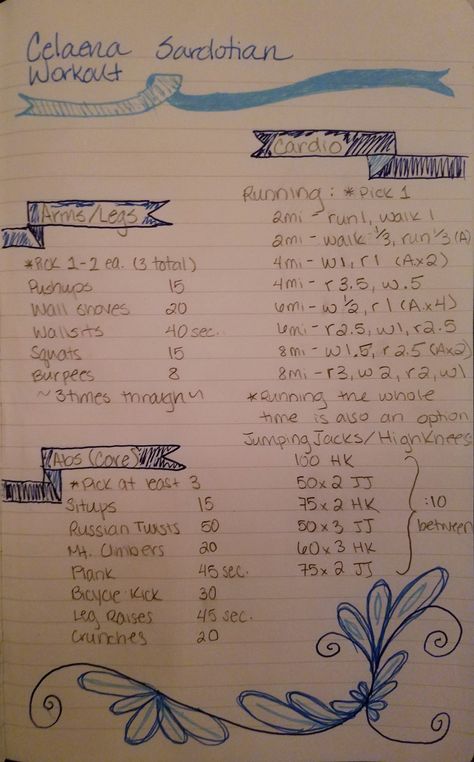 Celaena Sardotian
Workout
Cardio
Running: *Pick 1
2mi - run1, walk 1
2mi - walk 1/3, run 1/3 (A)
4mi - w1, r1 (Ax2)
4mi - r3.5, w.5
6mi - w 1/2, r1 (A.x4)
6mi - r2.5, w1, r2.5
8mi - w1.5, r2.5 (Ax2)
8mi - r3, w2, r2, w1
*Running the whole
time is also an option
Jumping Jacks/High Knees
100 HK
50x2 JJ
75x2 HK
50x3 JJ
60x3 HK
75x2 JJ
:10
between
Arms/Legs
*Pick 1-2 ea. (3 total)
Pushups 15
Wall shoves 20
Wallsits 40 sec.
Squats 15
Burpees 8
~3times through~
Abs (Core)
*Pick at least 3
Situps 15
Russian Twists 50
Mt. Climbers 20
Plank 45 sec.
Bicycle Kick 30
Leg Raises 45 sec.
Crunches 20